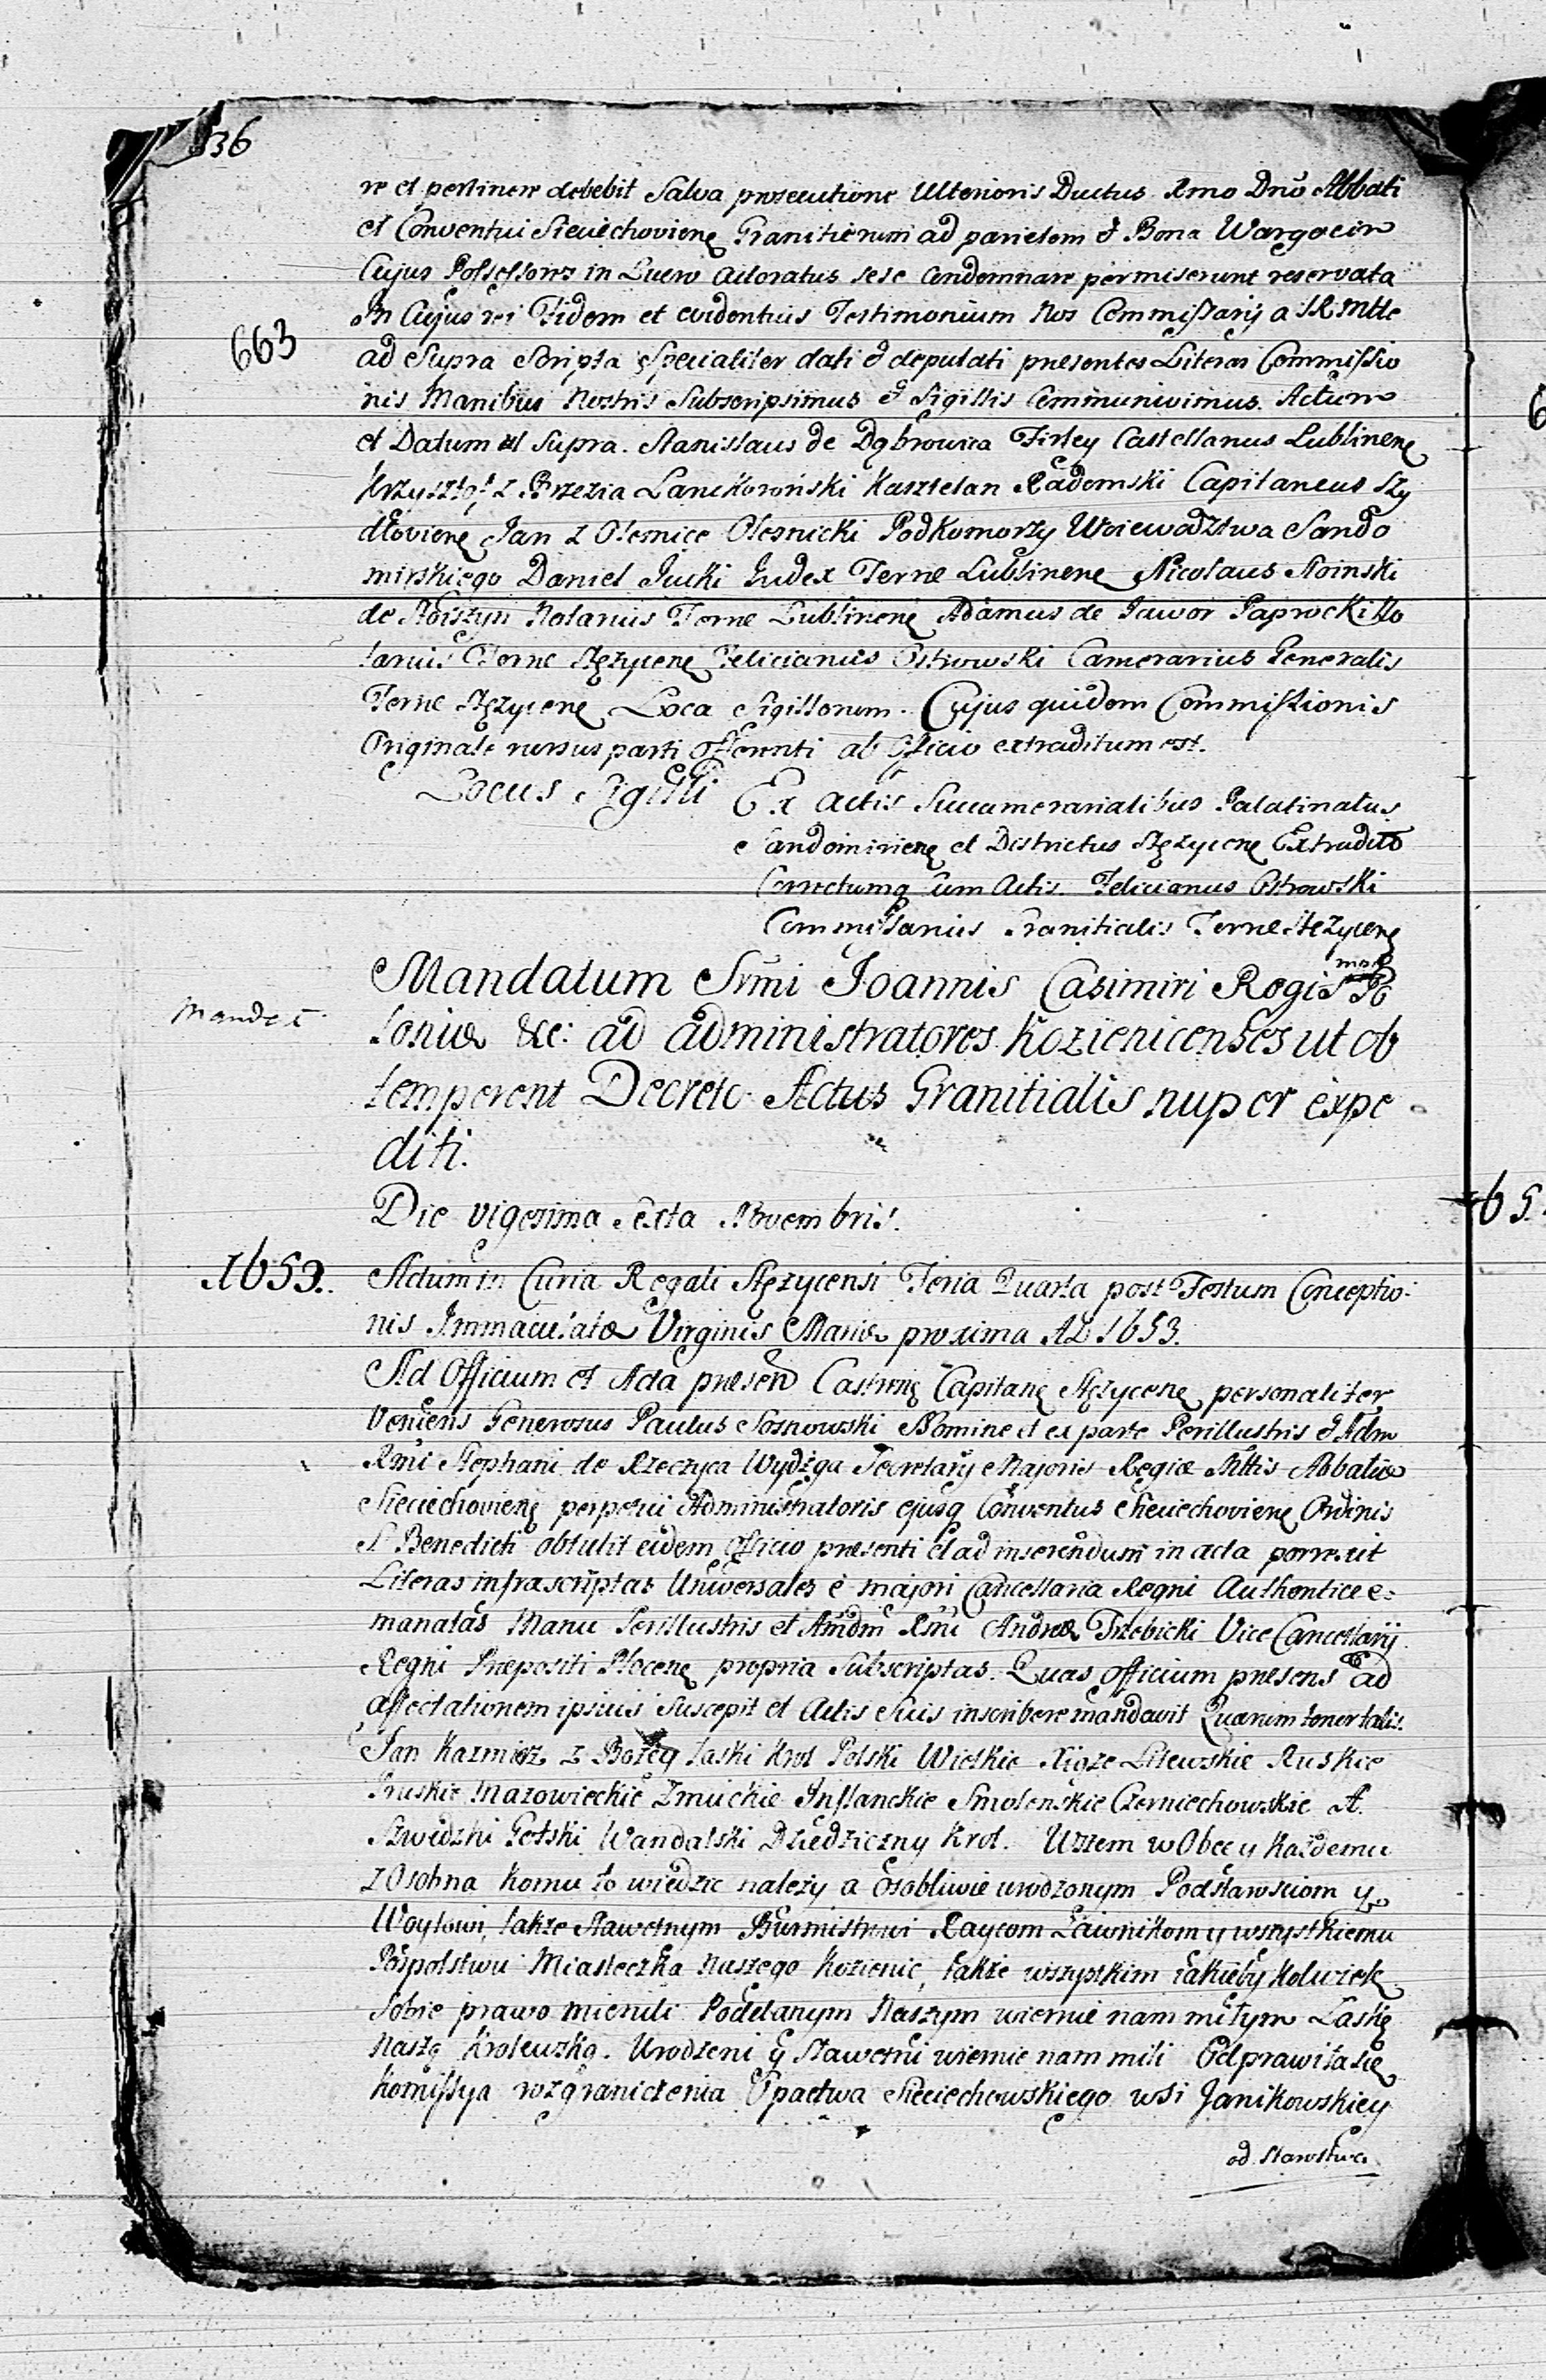 36
re et pertinere debebit Salva prosecutione Ulterioris Ductus Rmo Dno Abbati
et Conventui Sieciechoviene Granitierum ad parietem & Bona Wargocin
Cujus Possessores in Lucro adoratus sese Condemnare permiserunt reservata
In Cujus rei Fidem et evidentius Testimonium Nos Commissarij a SRMtte
663
ad Supra Scripta Specialiter dati & deputati presentes Literas Commissio
nis Manibus Nostris Subscripsimus & Sigillis Communivimus. Actum
et Datum ut Supra. Stanislaus de Dąbrowica Firley Castellanus Lublinene
Krzysztof z Brzezia Lanckoroński Kasztelan Radomski Capitaneus Szy
dłoviene Jan z Olesnice Olesnicki Podkomorzy Woiewodztwa Sando
mirskiego Daniel Jucki Judex Terrae Lublinene Nicolaus Stoinski
de Stoiszyn Notarius Terrae Lublinene Adamus de Jawor Paprocki No
tarius Terrae Stężycene Felicianus Ostrowski Camerarius Generalis
Terrae Stężycene Loca Sigillorum. Cujus quidem Commissionis
Originale rursus parti Offerenti ab Officio extraditum est.
Locus Sigilli
Ex Actis Succamerarialibus Palatinatus
Sandomiriene et Districtus Stężycene Extradit
Correctumq cum Actis. Felicianus Ostrowski
Commissarius Granitialis Terrae Stężycene
mp
Mandatum Srmi Joannis Casimiri Regis Po
Mandat
loniæ &c: ad administratores Kozienicenses ut ob
temperent Decreto Actus Granitialis nuper expe
diti.
Die vigesima Sexta Novembris.
1653.
Actum in Curia Regali Stężycensi Feria Quarta post Festum Conceptio-
nis Immaculatæ Virginis Mariæ proxima AD 1653.
Ad Officium et Acta presen Castrene Capitane Stężycene personaliter
Veniens Generosus Paulus Sosnowski Nomine et ex parte Perillustris & Adm
Rmi Stephani de Rzeczyca Wydżga Secretarij Majoris Regiæ Mttis Abbatiæ
Sieciechoviene perpetui Administratoris ejusq Conventus Sieciechoviene Ordinis
S Benedicti obtulit eidem Officio presenti et ad inserendum in acta porrexit
Literas infrascriptas Universales è majori Cancellaria Regni Authentice e-
manatas Manu Perillustris et Amdm Rmi Andreæ Trzebicki Vice Cancellarij
Regni Præpositi Plocene propria Subscriptas. Quas Officium presens ad
affectationem ipsius Suscepit et Actis Suis inscribere mandavit Quarum tenor talis.
Jan Kazmierz z Bożey Łaski Krol Polski Wielkie Xiąze Litewskie Ruskie
Pruskie Mazowieckie Zmuckie Inflanckie Smolenskie Czerniechowskie A.
Szwedzki Gotski Wandalski Dziedziczny Krol. Wszem w Obec y Każdemu
z Osobna Komu to wiedzic należy a osobliwie urodzonym Podstawsciom y
Woytowi, także Sławetnym Burmistrzowi Raycom Ławnikom y wszystkiemu
Pospolstwu Miasteczka Naszego Kozienic, także wszystkim iakieby Kolwiek
Sobie prawo mienili Poddanym Naszym wiernie nam miłym Łaskę
Naszą Krolewską. Urodzeni y Sławetni wiernie nam mili Odprawiła się
Komissya rozgraniczenia Opactwa Sieciechowskiego wsi Janikowskiey
od Starostwa